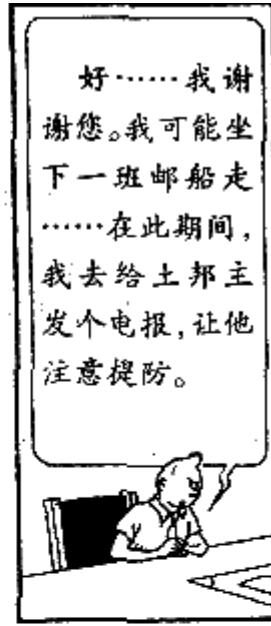 好……我谢
谢您。我可能坐
下一班邮船走
……在此期间，
我去给土邦主
发个电报，让他
注意提防。